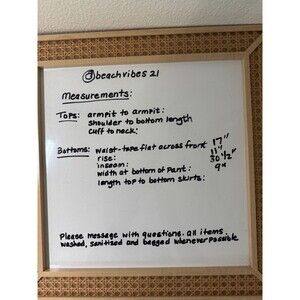 @beachvibes 21
Measurements:
Tops: armpit to armpit:
shoulder to bottom length
Cuff to neck:
Bottoms: waist-tape flat across front 17"
rise: 11"
inseam: 30 1/2"
width at bottom of Pant: 9"
length top to bottom skirts:
Please message with questions. all items
washed, sanitized and bagged whenever possible